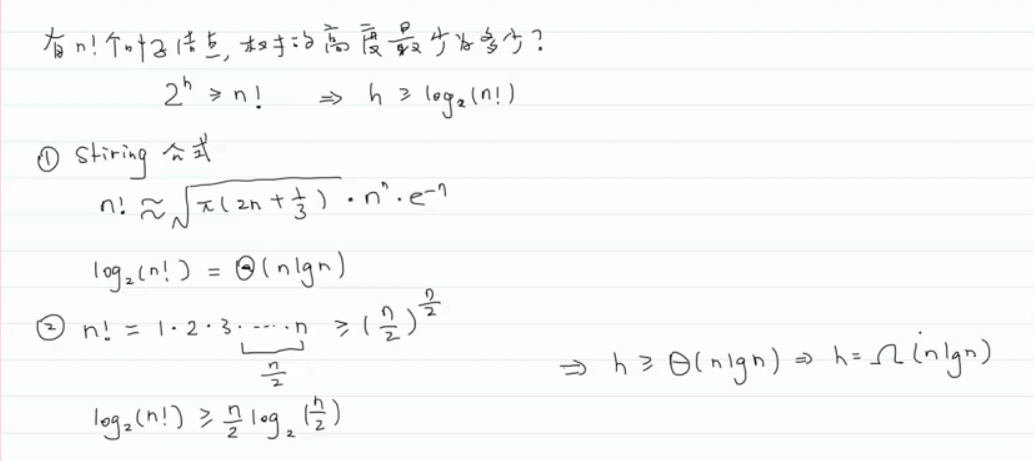 有n!个叶子结点, 树的高度最少为多少?
2^h ≥ n! ⇒ h ≥ log₂(n!)
① Stiring 公式
n! ≈ √(π(2n + 1/3)) · nⁿ · e⁻ⁿ
log₂(n!) = Θ(nlgn)
② n! = 1·2·3·····n ≥ (n/2)^(n/2)
n/2
⇒ h ≥ Θ(nlgn) ⇒ h = Ω(nlgn)
log₂(n!) ≥ n/2 log₂(n/2)